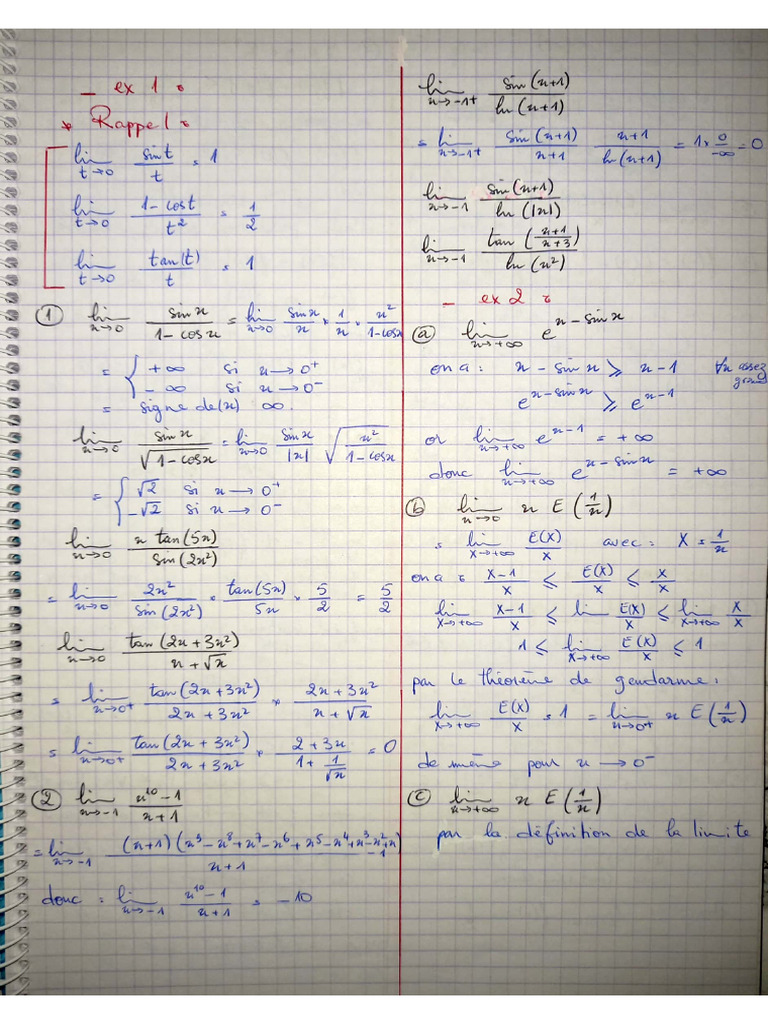 _ ex 1 :
* Rappel :
lim t→0 sin t / t = 1
lim t→0 1 - cos t / t² = 1/2
lim t→0 tan(t) / t = 1
① lim x→0 sin x / 1 - cos x = lim x→0 sin x / x * 1/x * x² / 1 - cos x
= { +∞ si x → 0⁺
- ∞ si x → 0⁻
= signe de(x) ∞.
lim x→0 sin x / √(1 - cos x) = lim x→0 sin x / |x| √(x² / 1 - cos x)
= { √2 si x → 0⁺
-√2 si x → 0⁻
lim x→0 x tan(5x) / sin(2x²)
= lim x→0 2x² / sin(2x²) * tan(5x) / 5x * 5/2 = 5/2
lim x→0 tan(2x + 3x²) / x + √x
= lim x→0⁺ tan(2x + 3x²) / 2x + 3x² * 2x + 3x² / x + √x
= lim x→0⁺ tan(2x + 3x²) / 2x + 3x² * 2 + 3x / 1 + 1/√x = 0
② lim x→-1 x¹⁰ - 1 / x + 1
= lim x→-1 (x+1)(x⁹ - x⁸ + x⁷ - x⁶ + x⁵ - x⁴ + x³ - x² + x - 1) / x + 1
donc : lim x→-1 x¹⁰ - 1 / x + 1 = -10
lim x→-1⁺ sin(x+1) / ln(x+1)
= lim x→-1⁺ sin(x+1) / x+1 x+1 / ln(x+1) = 1 * 0/-∞ = 0
lim x→-1 sin(x+1) / ln(|x|)
lim x→-1 tan(x+1 / x+3) / ln(x²)
_ ex 2 :
ⓐ lim x→+∞ e^(x - sin x)
on a : x - sin x ⩾ x - 1 ∀x assez grand
e^(x - sin x) ⩾ e^(x-1)
or lim x→+∞ e^(x-1) = +∞
donc lim x→+∞ e^(x - sin x) = +∞
ⓑ lim x→0 x E(1/x)
= lim X→+∞ E(X) / X avec : X = 1/x
on a : X-1 / X ⩽ E(X) / X ⩽ X / X
lim X→+∞ X-1 / X ⩽ lim E(X) / X ⩽ lim X→+∞ X / X
1 ⩽ lim X→+∞ E(X) / X ⩽ 1
par le théorème de gendarme :
lim X→+∞ E(X) / X = 1 = lim x→0⁺ x E(1/x)
de même pour x → 0⁻
ⓒ lim x→+∞ x E(1/x)
par la définition de la limite